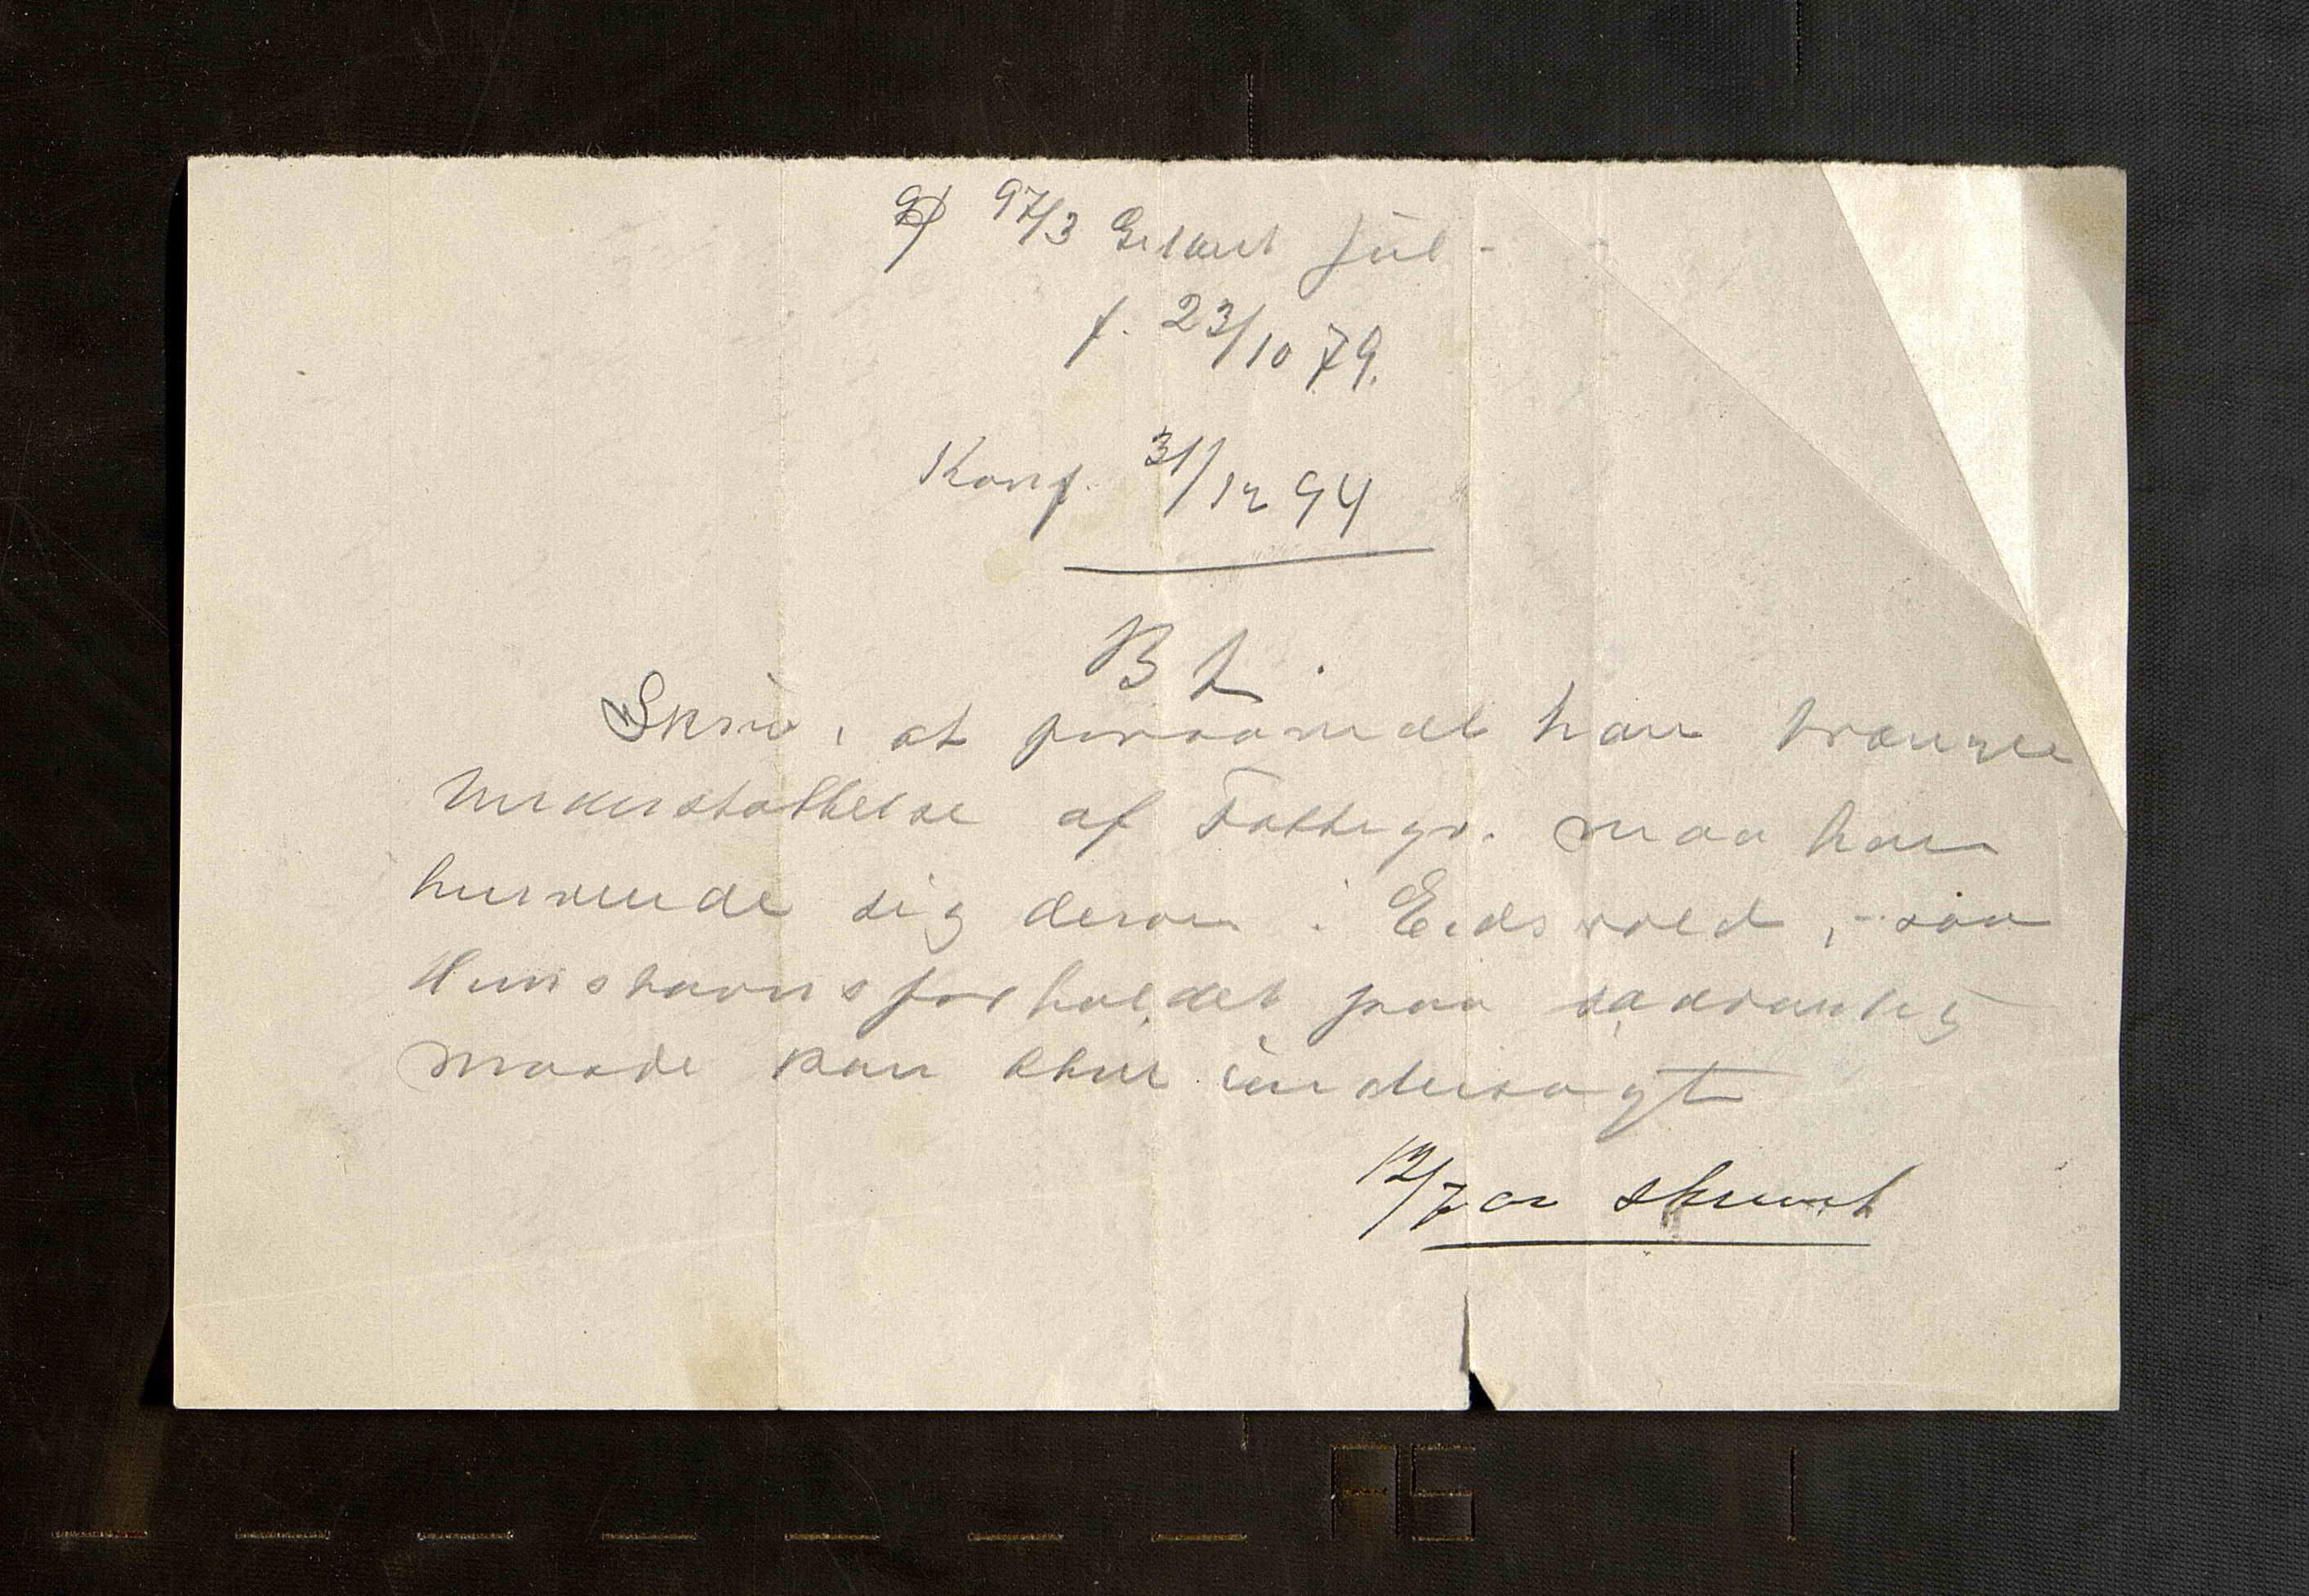 97/3 Eilert Juel -
f. 23/10 79.
Konf. 31/12 94
B L.
Skriv, at forsaavidt han trænger
Understøttelse af Fattigv. maa han
henvende sig derom i Eidsvold, - saa
Hjemstavnsforholdet paa sædvanlig
maade kan blive undersøgt
12/7 01 skrevet